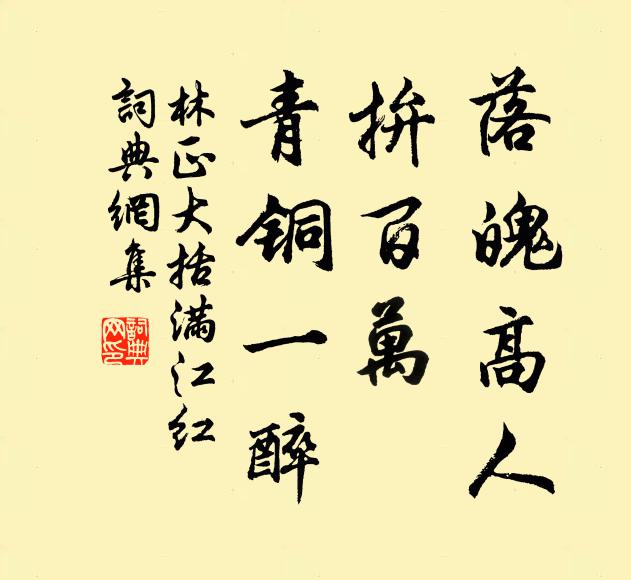 落魄高人
拚百萬
青銅一醉
林正大括满江红
詞典網集
詞典网印